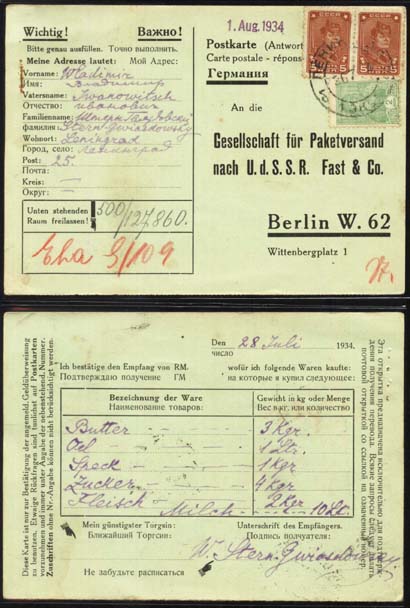 Wichtig! Важно!
Bitte genau ausfüllen. Точно выполнить.
Meine Adresse lautet: Мой Адрес:
Vorname: Wladimir
Имя: Владимир
Vatersname: Iwanowitsch
Отчество: Иванович
Familienname:
фамилия: Stern-Gwiasdowsky
Wohnort: Leningrad
Город, село: Ленинград
Post: 25.
Почта:
Kreis: —
Округ: —
Unten stehenden
Raum freilassen!
500/127860.
1. Aug. 1934
Postkarte (Antwort
Carte postale - répons
Германия
СССР
СССР
5
5
An die
Gesellschaft für Paketversand
nach U.d.S.S.R. Fast & Co.
Berlin W. 62
Wittenbergplatz 1
Diese Karte ist nur zur Bestätigung der angemeld. Geldüberweisung
zu benutzen. Etwaige Rückfragen sind tunlichst auf Postkarten
vorzunehmen und immer unter Angabe der nebenstehend. Nummer.
Zuschriften ohne Nr.-Angabe können nicht berücksichtigt werden.
Den 28 Juli 1934.
число
Ich bestätige den Empfang von RM. wofür ich folgende Waren kaufte:
Подтверждаю получение ГМ на которые я купил следующее:
Bezeichnung der Ware Gewicht in kg oder Menge
Наименование товаров: Вес в кг. или количество
Butter 3 Kgr
Oel 1 Ltr.
Speck 1 Kgr
Zucker 4 Kgr
Fleisch 2 Kgr
Milch 10 Lt.
Mein günstigster Torgsin: Unterschrift des Empfängers.
Ближайший Торгсин: Подпись получателя:
W. Stern-Gwiasdowsky
Не забудьте расписаться